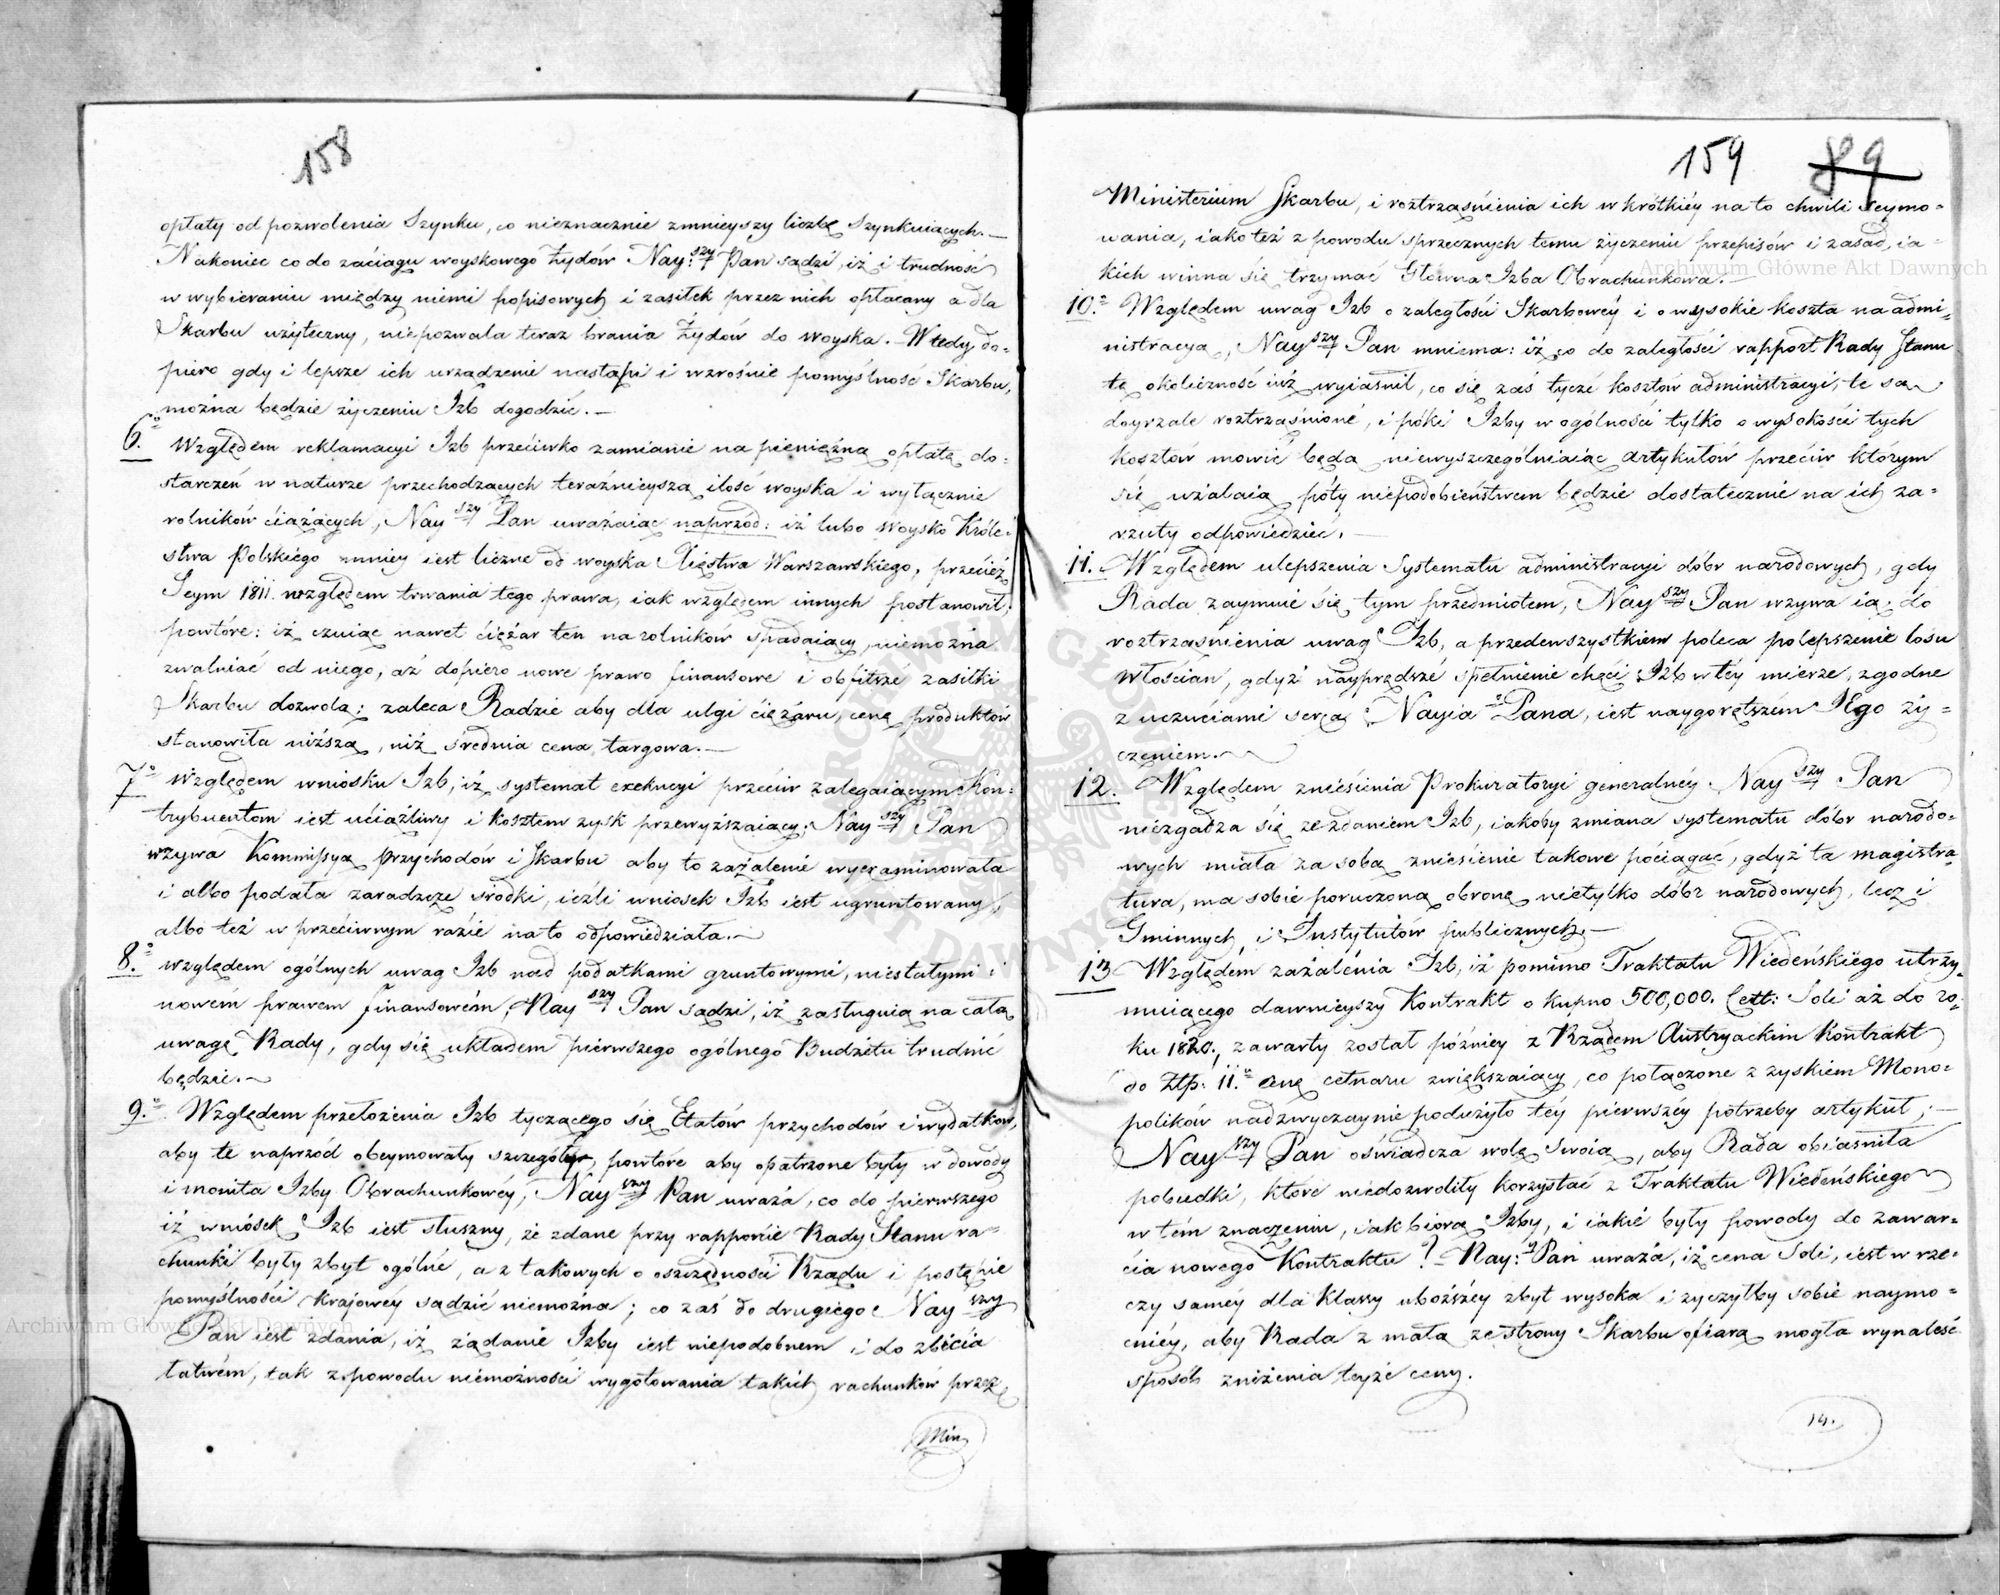 158
opłaty od pozwolenia Szynku, co nieznacznie zmnieyszy liczbę Szynkuiących.—
Nakoniec co do zaciągu woyskowego Żydów Nay:szy Pan sądzi, iż i trudność
w wybieraniu między niemi popisowych i zasiłek przez nich opłacany a dla
Skarbu użyteczny, niepozwala teraz brania Żydów do woyska. Wtedy do=
piero gdy i lepsze ich urządzenie nastąpi i wzrośnie pomyślność Skarbu,
można będzie życzeniu Izb dogodzić.—
6.° Względem reklamacyi Izb przeciwko zamianie na pieniężną opłatę do=
starczeń w naturze przechodzących teraźnieyszą ilość woyska i wyłącznie
rolników ciążących, Nayszy Pan uważaiąc naprzód: iż lubo woysko Króle=
stwa Polskiego mniey iest liczne od woyska Xięstwa Warszawskiego, przecież
Seym 1811. względem trwania tego prawa, iak względem innych postanowił;
powtóre: iż czuiąc nawet ciężar ten na rolników spadaiący, niemożna
zwalniać od niego, aż dopiero nowe prawo finansowe i obfitsze zasiłki
Skarbu dozwolą; zaleca Radzie aby dla ulgi ciężaru, cenę produktów
stanowiła niższą, niż średnia cena targowa.—
7° Względem wniosku Izb, iż systemat exekucyi przeciw zalegaiącym Kon=
trybuentom iest uciążliwy i kosztem zysk przewyższaiący; Nayszy Pan
wzywa Kommissyą Przychodów i Skarbu aby to zażalenie wyexaminowała
i albo podała zaradcze środki, ieżli wniosek Izb iest ugruntowany,
albo też w przeciwnym razie na to odpowiedziała.—
8.° względem ogólnych uwag Izb nad podatkami gruntowymi, niestałymi i
nowém prawem finansowém, Nayszy Pan sądzi, iż zasługuią na całą
uwagę Rady, gdy się układem pierwszego ogólnego Budżetu trudnić
będzie.—
9.° Względem przełożenia Izb tyczącego się Etatów przychodów i wydatków,
aby te naprzód obeymowały szczegóły, powtóre aby opatrzone były w dowody
i monita Izby Obrachunkowéy, Nayszy Pan uważa, co do pierwszego
iż wniosek Izb iest słuszny, że zdane przy rapporcie Rady Stanu ra=
chunki były zbyt ogólne, a z takowych o oszczędności Rządu i postępie
pomyślności Krajowéy sądzić niemożna; co zaś do drugiego Nayszy
Pan iest zdania, iż żądanie Izby iest niepodobnem i do zbicia
łatwém, tak z powodu niemożności wygotowania takich rachunków przez
Min
159 89
Ministerium Skarbu, i roztrząśnienia ich w krótkiéy na to chwili Seymo=
wania, iako też z powodu sprzecznych temu życzeniu przepisów i zasad, ia=
kich winna się trzymać Główna Izba Obrachunkowa.—
10.° Względem uwag Izb o zaległości Skarbowéy i o wysokie koszta na admi=
nistracyą, Nayszy Pan mniema: iż co do zaległości rapport Rady Stanu
tę okoliczność iuż wyiaśnił, co się zaś tycze kosztów administracyi, te są
doyrzale roztrząśnione, i póki Izby w ogólności tylko o wysokości tych
kosztów mowić będą niewyszczególniaiąc artykułów przeciw którym
się użalaią póty niepodobieństwem będzie dostatecznie na ich za=
rzuty odpowiedzieć.—
11. Względem ulepszenia Systematu administracyi dóbr narodowych, gdy
Rada zaymuie się tym przedmiotem, Nayszy Pan wzywa ią do
roztrząśnienia uwag Izb, a przedewszystkiem poleca polepszenie losu
włościan, gdyż nayprędsze spełnienie chęci Izb w téy mierze, zgodne
z uczuciami serca Nayia. Pana, iest naygorętszem Jego ży=
czeniem.—
12. Względem zniesienia Prokuratoryi generalnéy Nayszy Pan
niezgadza się ze zdaniem Izb, iakoby zmiana systematu dóbr narodo=
wych miała za sobą zniesienie takowe pociągać, gdyż ta magistra=
tura, ma sobie poruczoną obronę nietylko dóbr narodowych, lecz i
Gminnych i Instytutów publicznych.—
13 Względem zażalenia Izb, iż pomimo Traktatu Wiedeńskiego utrzy=
muiącego dawnieyszy Kontrakt o kupno 500,000. Cett: Soli aż do ro=
ku 1820., zawarty został późniey z Rządem Austryackim Kontrakt
do Złp: 11. cenę cetnaru zwiększaiący, co połączone z zyskiem Mono=
polików nadzwyczaynie podużyło téy pierwszéy potrzeby artykuł;—
Nayszy Pan oświadcza wolę swoią, aby Rada obiaśniła
pobudki, które niedozwoliły korzystać z Traktatu Wiedeńskiego
w tém znaczeniu, iak biorą Izby, i iakie były powody do zawar=
cia nowego Kontraktu? Nay:y Pan uważa, iż cena Soli, iest w rze=
czy saméy dla klassy uboższéy zbyt wysoka i życzyłby sobie naymo=
cniéy, aby Rada z małą ze strony Skarbu ofiarą mogła wynaleść
sposób zniżenia teyże ceny.
14.
Archiwum Główne Akt Dawnych
Archiwum Główne Akt Dawnych